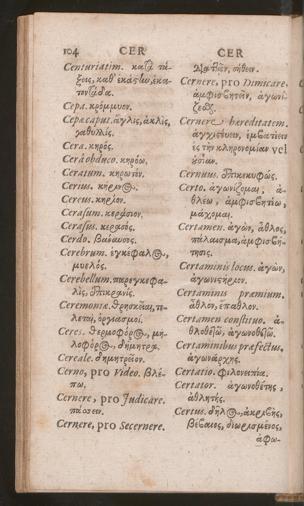 104 CER
Centuriatim. κατὰ τά-
ξεις, καθ' ἑκάστην, ἑκα-
τοντάδα.
Cepa. κρόμμυον.
Cepæ caput. ἄγλις, ἀκλὶς,
γαθυλλίς.
Cera. κηρός.
Cerâ obduco. κηρόω.
Ceratum. κηρωτόν.
Cerius.
Cereus. κηρίον.
Cerasum. κεράσιον.
Cerasus. κερασός.
Cerdo. βάναυσος.
Cerebrum. ἐγκέφαλος,
μυελός.
Cerebellum. παρεγκεφα-
λὶς, ἐπικρανίς.
Ceremoniæ. θρησκεῖαι, τε-
λεταὶ, ὀργιασμοί.
Ceres. θερμοφόρος, μη-
λοφόρος, δημήτρα.
Cereale. δημητρεῖον.
Cerno, pro Video. βλέ-
πω.
Cernere, pro Judicare.
Cernere, pro Secernere.
CER
σήθειν.
Cernere, pro Dimicare.
ἀμφισβητεῖν, ἀγωνί-
ζεσθαι.
Cernere hæreditatem.
ἐμβατεύειν
εἰς τὴν κληρονομίαν vel
οὐσίαν.
Cernuus. ἐπικυφώς.
Certo. ἀγωνίζομαι, ἀ-
θλέω, ἀμφισβητέω,
μάχομαι.
Certamen. ἀγών, ἆθλος,
πάλαισμα, ἀμφισβή-
τησις.
Certaminis locus. ἀγών,
ἀγωνιστήριον.
Certaminis præmium.
ἆθλον, ἔπαθλον.
Certamen constituo. ἀ-
θλοθετῶ, ἀγωνοθετῶ.
Certaminibus præfectus.
ἀγωνάρχης.
Certatio. φιλονεικία.
Certator. ἀγωνοθέτης,
ἀθλητής.
Certus. δῆλος, ἀκριβὴς,
βέβαιος, διωρισμένος,
ἀφω-